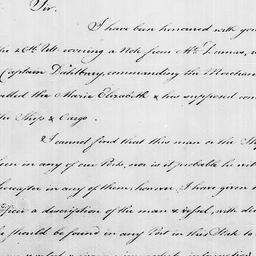 Sir.
I have been honoured with you
the 24th Ult. covering a Note from Mr. Dumas,
Captain Duisbury, commanding the Merchan
called the Marie Elizabeth & has supposed
the Ship & Cargo.
I cannot find that this man or the Sh
been in any of our Ports, nor is it probable he wi
hereafter in any of them; however I have given
Officer a description of the man & vessel, with di
he should be found in any Port in this State to